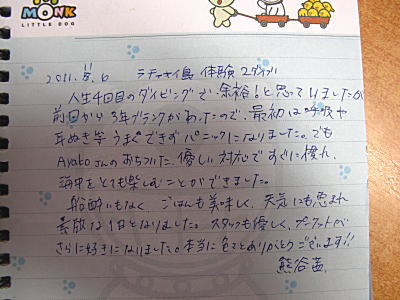 MONK
LITTLE DOG
2011.5.6 ラチャヤイ島 体験 2ダイブ
人生4回目のダイビングで、余裕!と思っていましたが
前回から3年ブランクがあったので、最初は呼吸や
耳ぬき等うまくできずパニックになりました。でも
Ayakoさんのおちついた、優しい対応ですぐに慣れ、
海中をとても楽しむことができました。
船酔いもなく、ごはんも美味しく、天気にも恵まれ
素敵な1日となりました。スタッフも優しく、プーケットが
さらに好きになりました。本当に色々とありがとうございます!!
熊谷